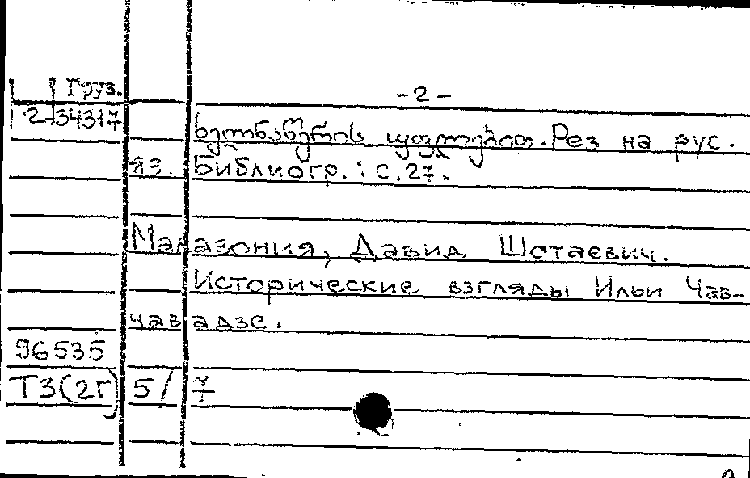 Груз.
-2-
2-34317
ხელნაწერის უფლებით. Рез на рус.
яз. Библиогр.: с.27.
Малазония, Давид Шотаевич.
Исторические взгляды Ильи Чав-
чавадзе.
96535
Т3(2Г) 5/